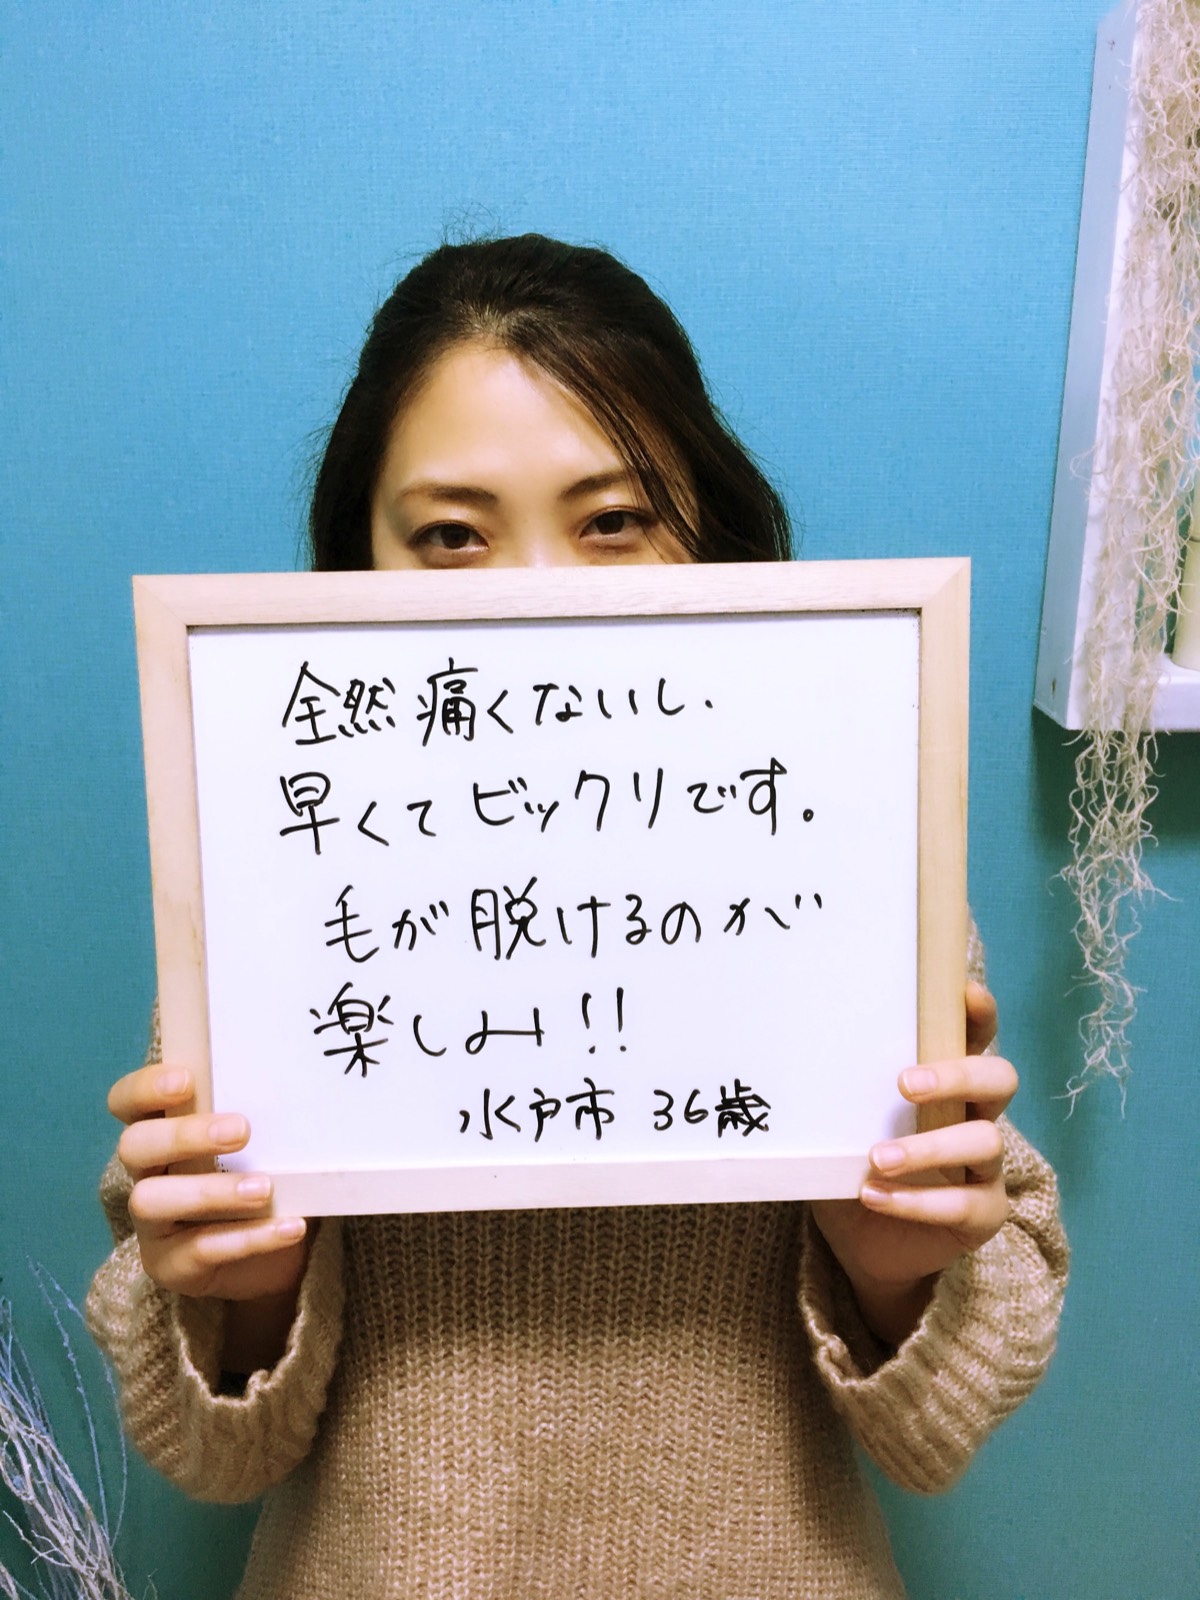 全然痛くないし、
早くてビックリです。
毛が脱けるのが
楽しみ!!
水戸市 36歳